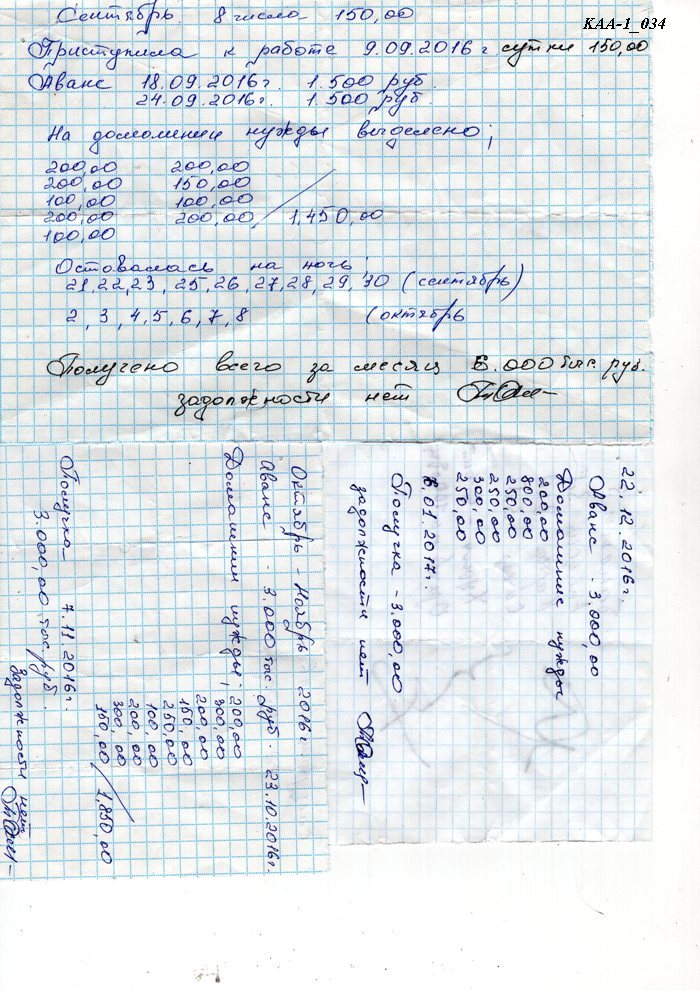 KAA-1_034
Сентябрь 8 числа 150,00
Приступила к работе 9.09.2016г сутки 150,00
Аванс 18.09.2016г. 1.500 руб.
24.09.2016г. 1.500 руб.
На домашнии нужды выделено;
200,00 200,00
200,00 150,00
100,00 100,00
200,00 200,00 / 1,450,00
100,00
Оставалась на ночь;
21,22,23, 25,26,27,28,29,30 (сентябрь)
2, 3, 4,5,6,7,8 (октябрь
Получено всего за месяц 6.000 тыс. руб.
задолжности нет
Октябрь - Ноябрь 2016г.
Аванс - 3.000 тыс. руб. 23.10.2016г.
Домашнии нужды; 200,00
300,00
200,00
150,00
250,00
100,00
200,00
300,00
150,00 / 1,850,00
Получка 7.11 2016г.
3.000,00 тыс. руб.
задолжности нет
22.12.2016г.
Аванс - 3.000,00
Домашние нужды
200,00
800,00
250,00
250,00
300,00
250,00
8.01.2017г.
Получка - 3.000,00
задолжности нет